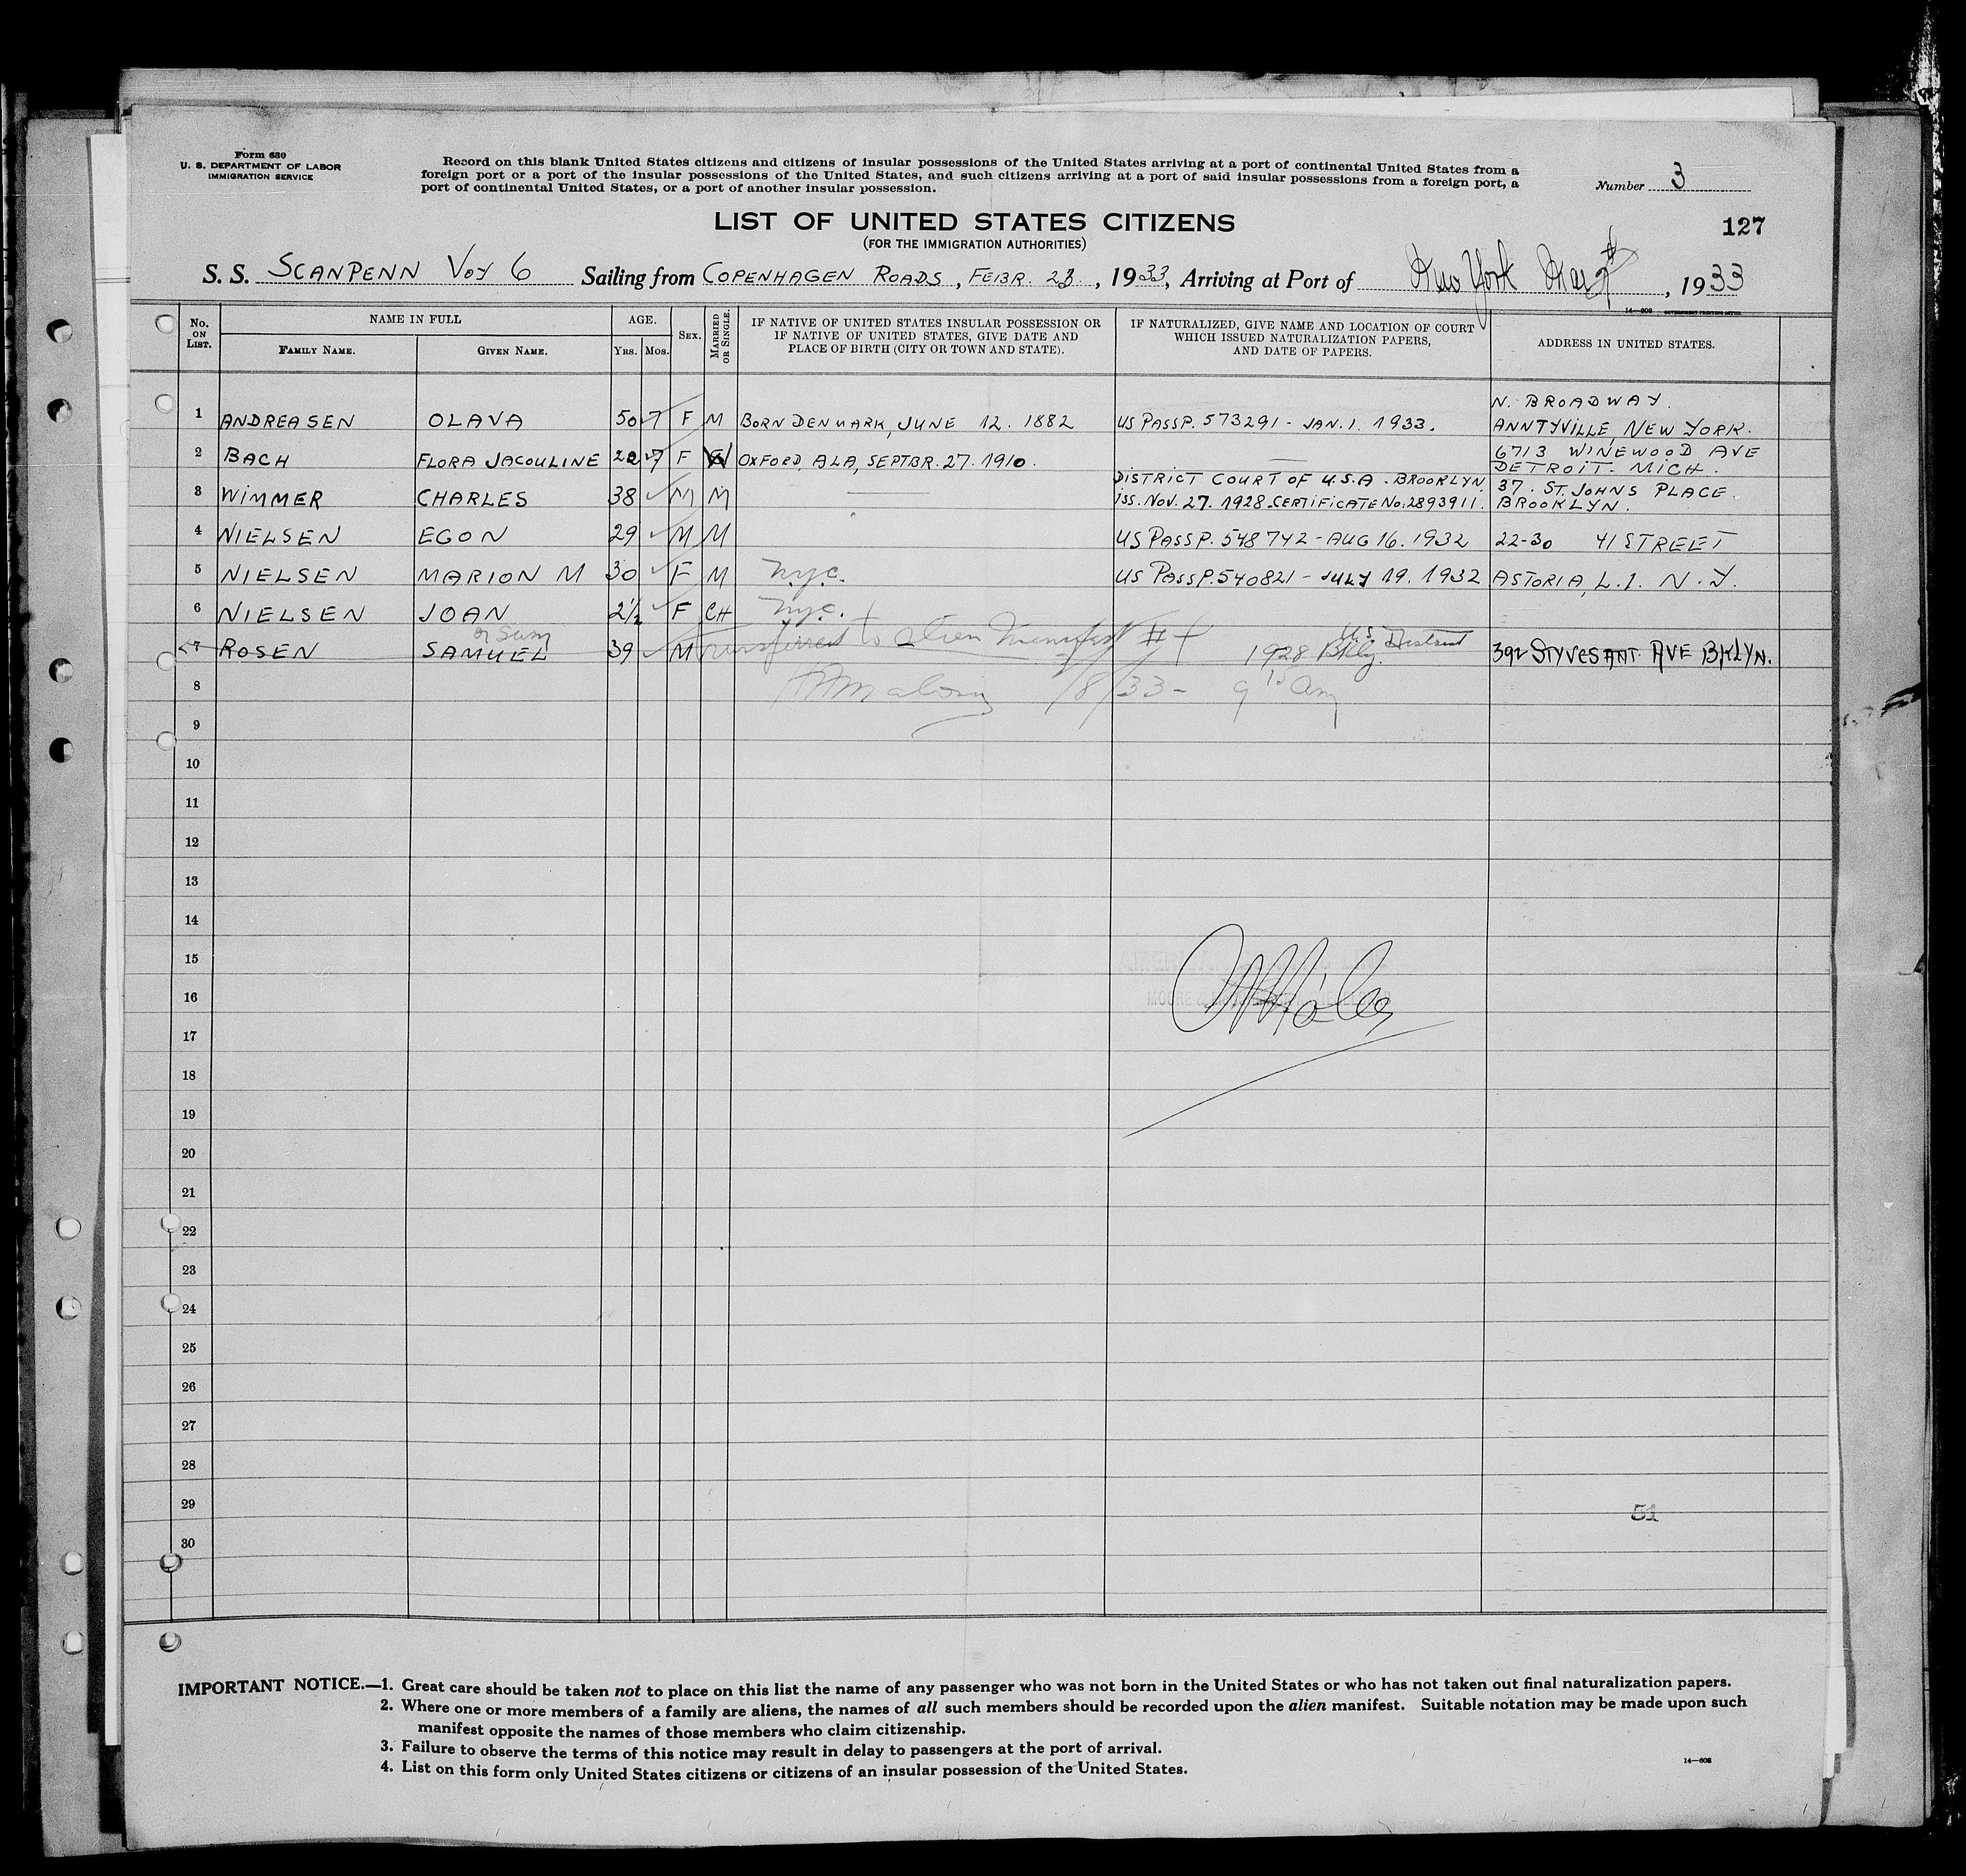 Form 630
U. S. DEPARTMENT OF LABOR
IMMIGRATION SERVICE
Record on this blank United States citizens and citizens of insular possessions of the United States arriving at a port of continental United States from a
foreign port or a port of the insular possessions of the United States, and such citizens arriving at a port of said insular possessions from a foreign port, a
port of continental United States, or a port of another insular possession.
Number 3
LIST OF UNITED STATES CITIZENS
(FOR THE IMMIGRATION AUTHORITIES)
127
S. S. SCANPENN VOY 6 Sailing from COPENHAGEN ROADS, FEBR. 23, 1933, Arriving at Port of New York Mar, 1933
14—608 GOVERNMENT PRINTING OFFICE
No. ON LIST. NAME IN FULL FAMILY NAME. GIVEN NAME. AGE. YRS. MOS. SEX. MARRIED OR SINGLE. IF NATIVE OF UNITED STATES INSULAR POSSESSION OR IF NATIVE OF UNITED STATES, GIVE DATE AND PLACE OF BIRTH (CITY OR TOWN AND STATE). IF NATURALIZED, GIVE NAME AND LOCATION OF COURT WHICH ISSUED NATURALIZATION PAPERS, AND DATE OF PAPERS. ADDRESS IN UNITED STATES.
N. BROADWAY.
1 ANDREASEN OLAVA 50 7 F M BORN DENMARK, JUNE 12. 1882 US PASSP. 573291 - JAN. 1. 1933. ANNTYVILLE, NEW YORK.
6713 WINEWOOD AVE
2 BACH FLORA JACOULINE 22 7 F OXFORD, ALA, SEPTBR. 27. 1910. — DETROIT. MICH.
DISTRICT COURT OF U.S.A. BROOKLYN 37. ST. JOHNS PLACE.
3 WIMMER CHARLES 38 M M — ISS. NOV. 27. 1928. CERTIFICATE No: 2893911. BROOKLYN.
4 NIELSEN EGON 29 M M US PASSP. 548742 - AUG 16. 1932 22-30 41 STREET
5 NIELSEN MARION M 30 F M N.Y.C. US PASSP. 540821 - JULY 19. 1932 ASTORIA, L.I. N.Y.
6 NIELSEN JOAN 2½ F CH N.Y.C.
or Sam
U.S. District
7 ROSEN SAMUEL 39 M Transferred to alien Manifest # 1928 Bkly. 392 STYVESANT AVE BKLYN.
8 /8/33 - 9 15 am
9
10
11
12
13
14
15
16
17
18
19
20
21
22
23
24
25
26
27
28
29 51
30
IMPORTANT NOTICE.—1. Great care should be taken not to place on this list the name of any passenger who was not born in the United States or who has not taken out final naturalization papers.
2. Where one or more members of a family are aliens, the names of all such members should be recorded upon the alien manifest. Suitable notation may be made upon such
manifest opposite the names of those members who claim citizenship.
3. Failure to observe the terms of this notice may result in delay to passengers at the port of arrival.
4. List on this form only United States citizens or citizens of an insular possession of the United States.
14—608